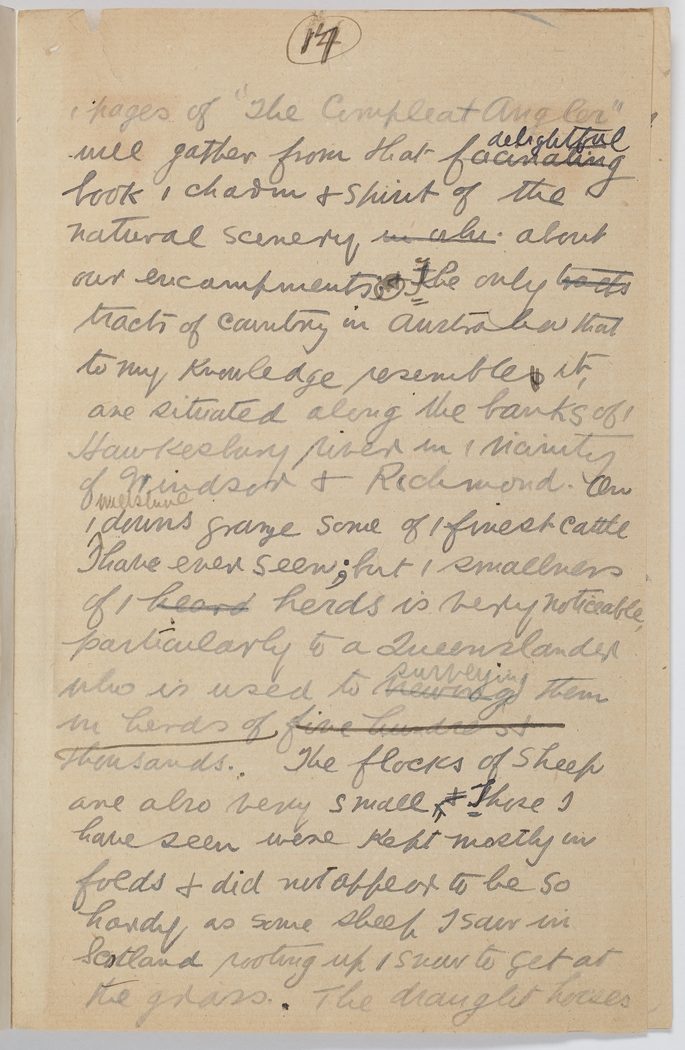 14
, pages of "The Compleat Angler"
will gather from that facinating delightful
book , charm & spirit of the
natural scenery about
our encampments. & The only tracts
tracts of country in Australia that
to my knowledge resemble it,
are situated along the banks of ,
Hawkesbury river in , vicinity
of Windsor & Richmond. On
, downs graze some of , finest cattle
I have ever seen; but , smallness
of , heard herds is very noticeable,
particularly to a Queenslander
who is used to viewing surveying them
in herds of five hundreds &
thousands. The flocks of sheep
are also very small, & Those I
have seen were kept mostly in
folds & did not appear to be so
hardy as some sheep I saw in
Scotland rooting up , snow to get at
the grass. The draught horses